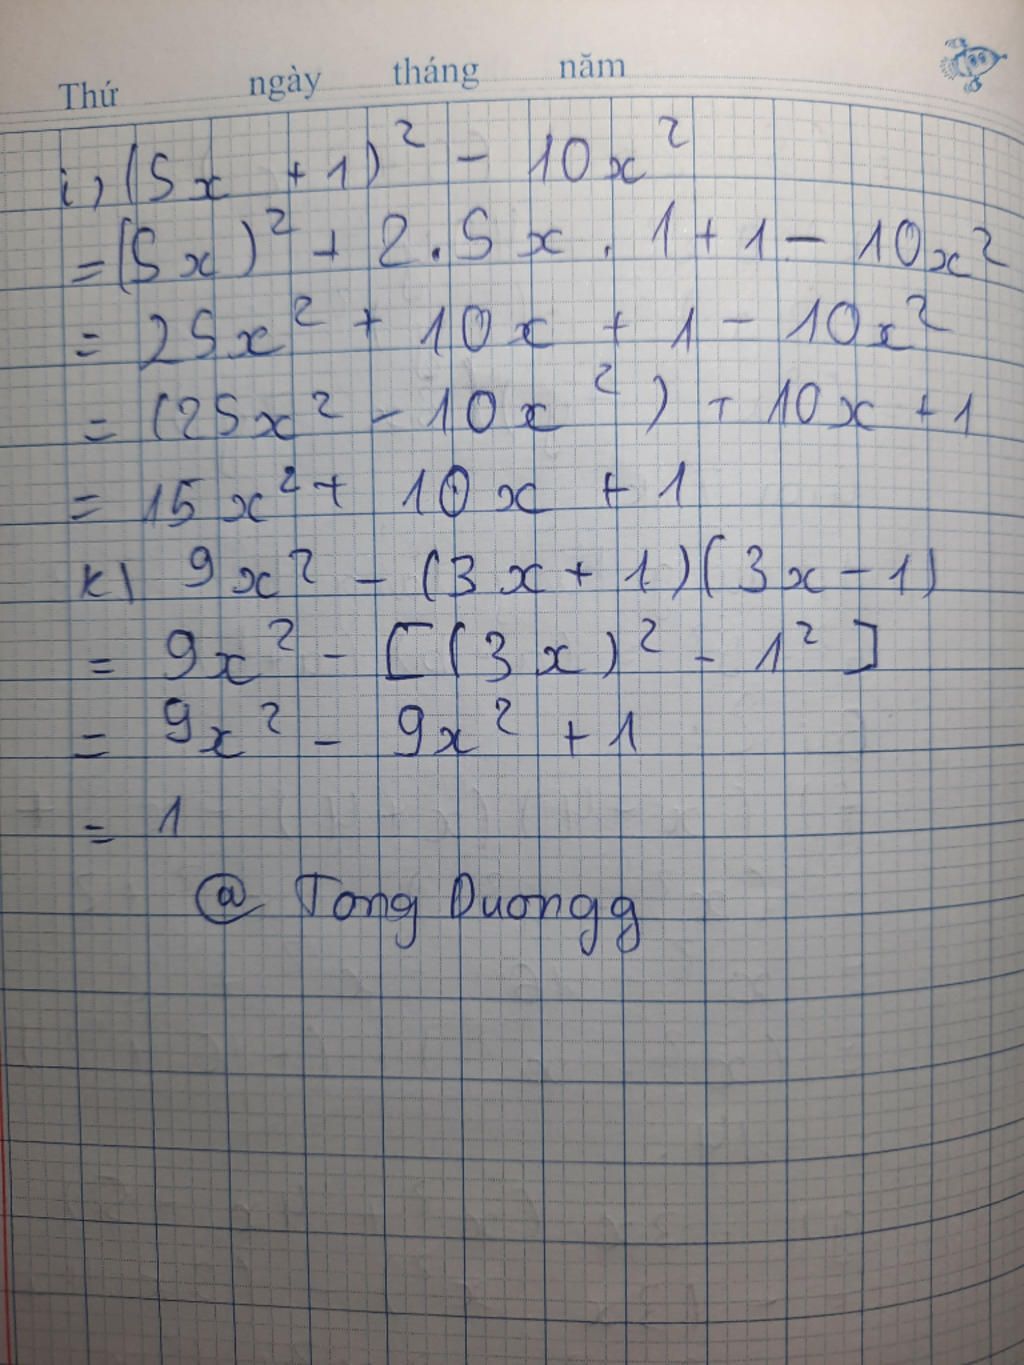 Thứ ngày tháng năm
i) (5x + 1)² - 10x²
= (5x)² + 2.5x.1 + 1 - 10x²
= 25x² + 10x + 1 - 10x²
= (25x² - 10x²) + 10x + 1
= 15x² + 10x + 1
k) 9x² - (3x + 1)(3x - 1)
= 9x² - [(3x)² - 1²]
= 9x² - 9x² + 1
= 1
@ Tong Duongg